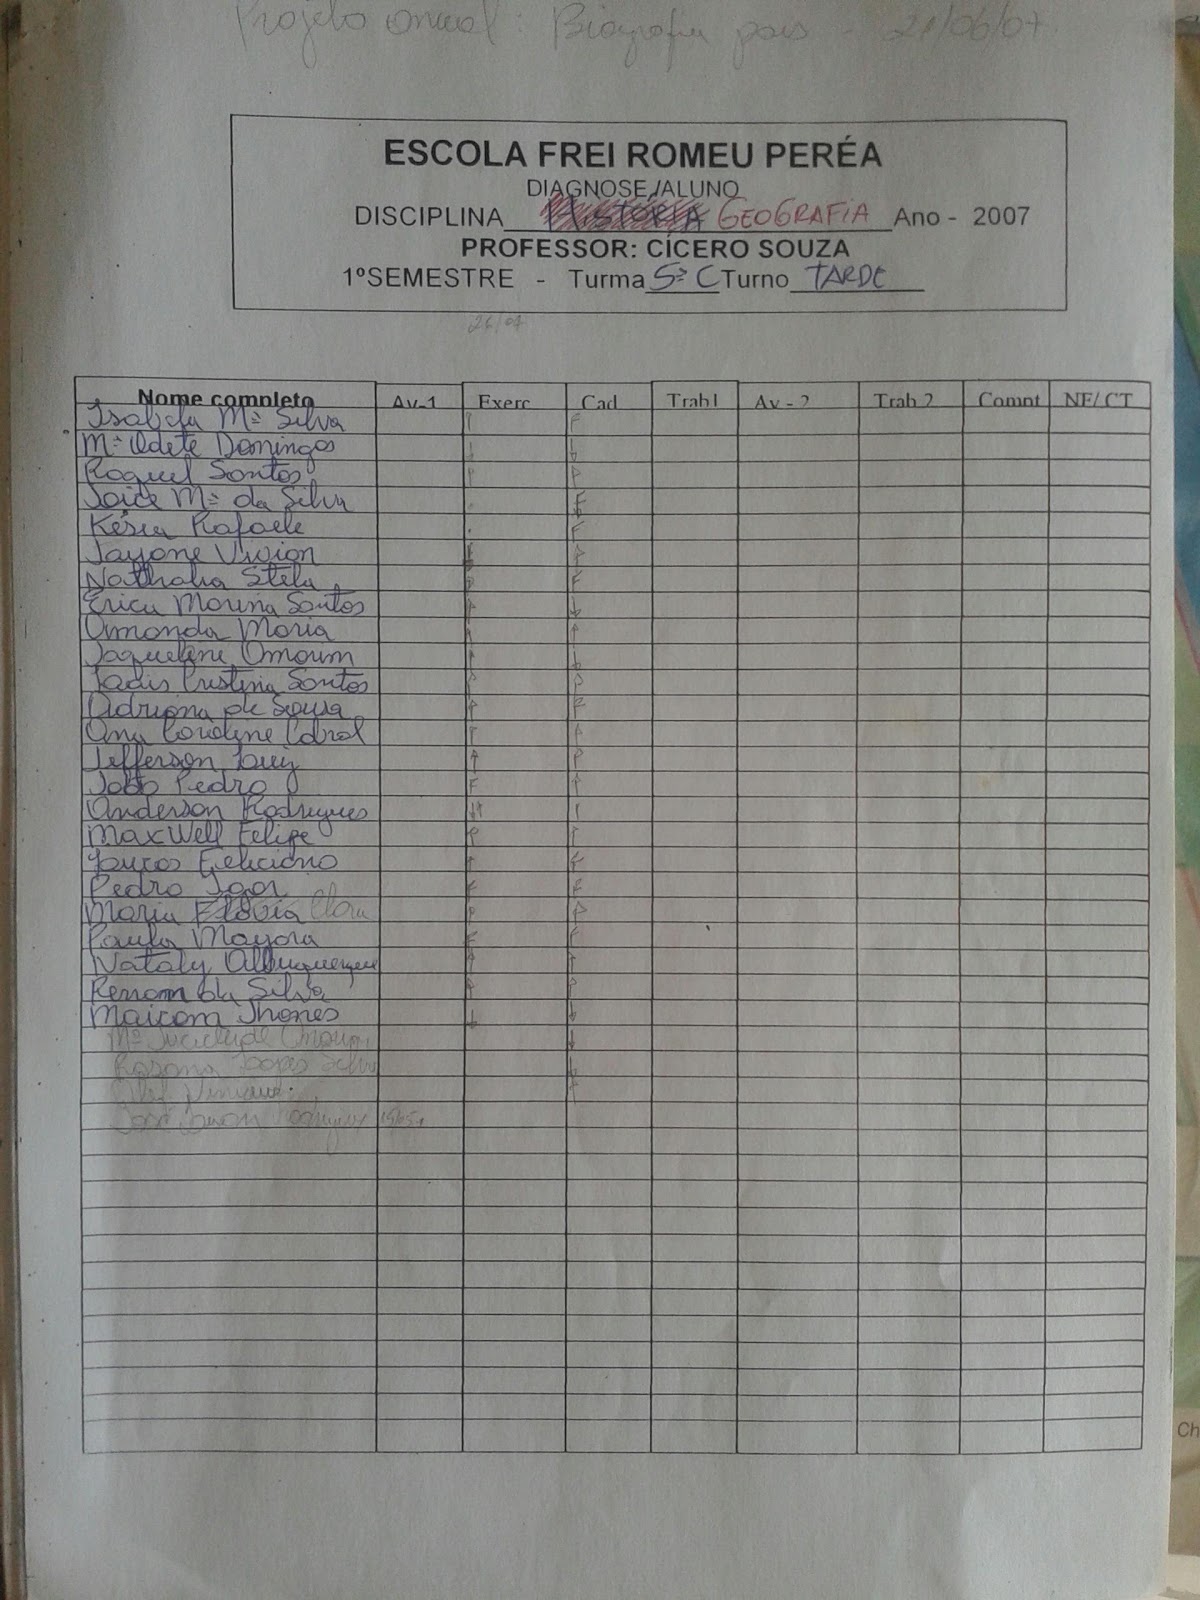 Projeto anual: Biografia pais - 21/06/07.
ESCOLA FREI ROMEU PERÉA
DIAGNOSE /ALUNO
DISCIPLINA HISTÓRIA GEOGRAFIA Ano - 2007
PROFESSOR: CÍCERO SOUZA
1ºSEMESTRE - Turma 5ª C Turno TARDE
26/04
Nome completo Av-1 Exerc Cad Trab1 Av - 2 Trab 2 Compt NF/ CT
Isabela Mª Silva F
Mª Odete Domingos
Raquel Santos
Joice Mª da Silva F
Késia Rafaele F
Jayane Vivian
Nathalia Stela F
Erica Morena Santos
Amanda Maria
Jaqueline Amorim
Tadis Cristina Santos
Adriana de Sousa
Ana Caroline Cabral
Jefferson Luiz
João Pedro F
Anderson Rodrigues
MaxWell Felipe
Lucas Feliciano
Pedro Igor
Maria Flávia Clara
Paula Mayara
Nataly Albuquerque
Renam da Silva
Maicom Jhones
Mª Lucicleide Amorim
Rosana Lopes Silva
Vinicius
José Rodrigues
Ch